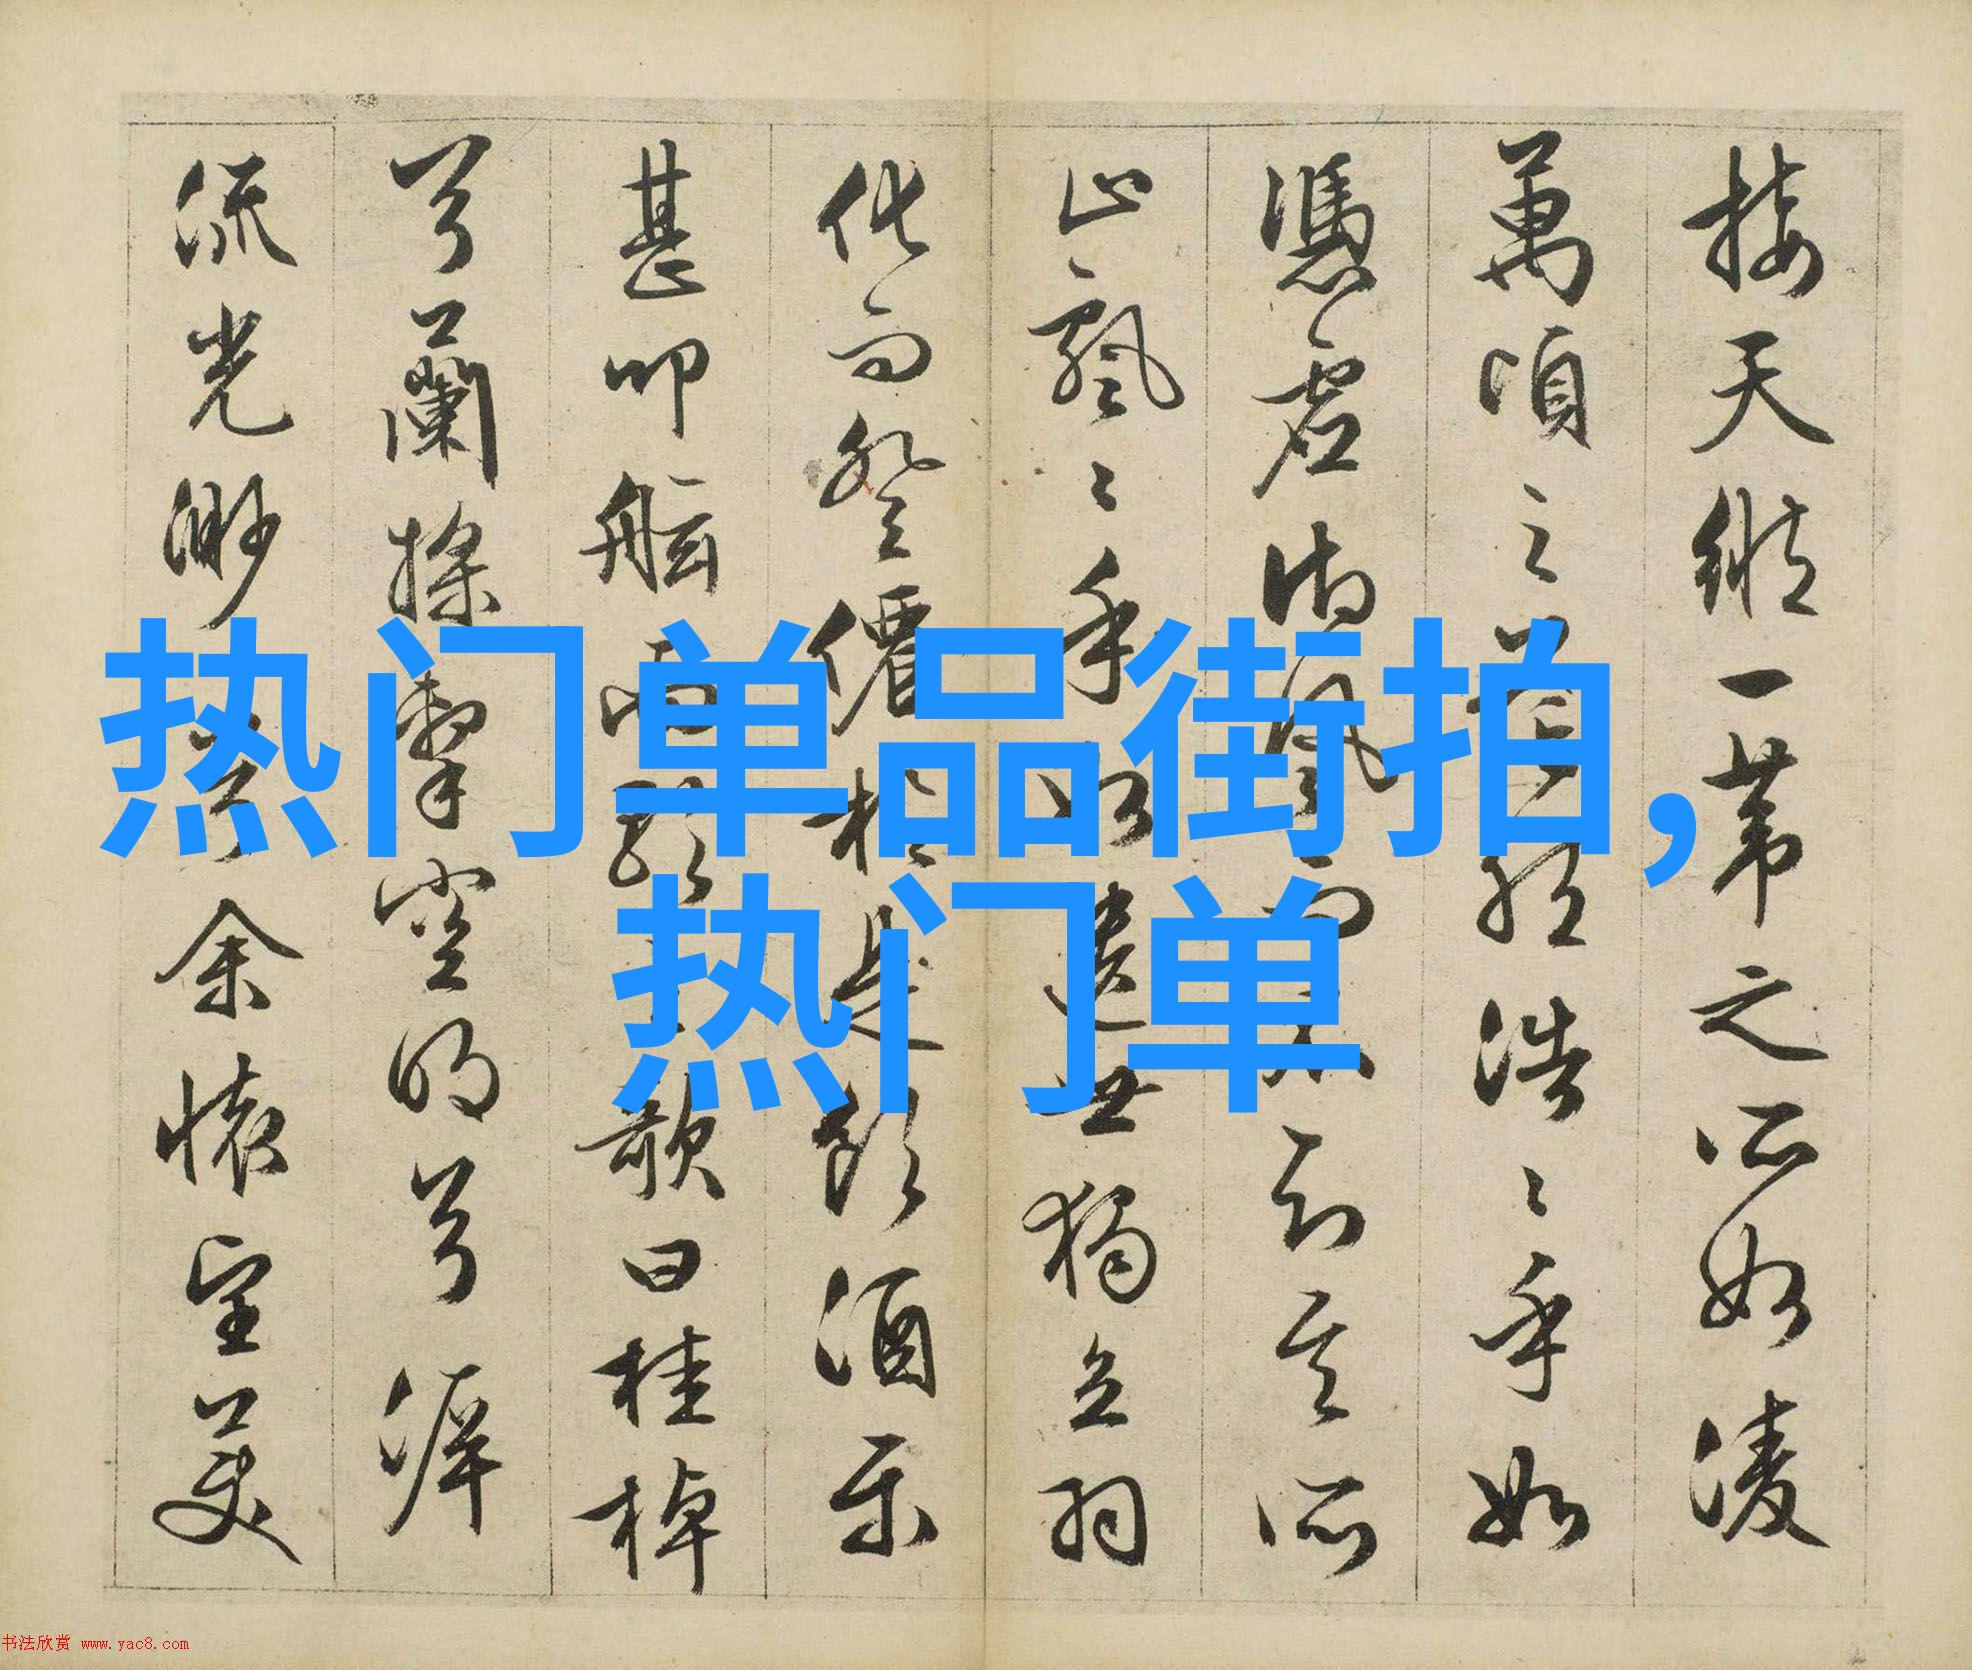 接天縱一葦之所如凌
萬頃之茫然浩〻乎如
憑虛御風而不知其所
止飄〻乎如遺世獨立羽
化而登僊於是飲酒樂
甚叩舷而歌之歌曰桂棹
兮蘭槳擊空明兮泝
流光渺〻兮余懷望美
热门单品街拍,
热门单
书法欣赏 www.yac8.com